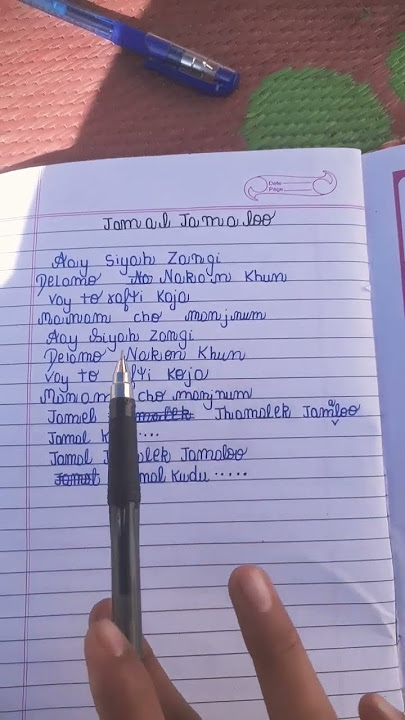 Date
Page
Jamal Jamaloo
Aay Siyah Zangi
Delamo Nakon Khun
Vay to rafti Koja
Manam cho manjnum
Aay Siyah Zangi
Delamo Nakon Khun
Vay to fti Koja
Manam cho manjnum
Jamel Jhamalek Jamaloo
Jamal K...
Jamal J lek Jamaloo
mal Kudu .....